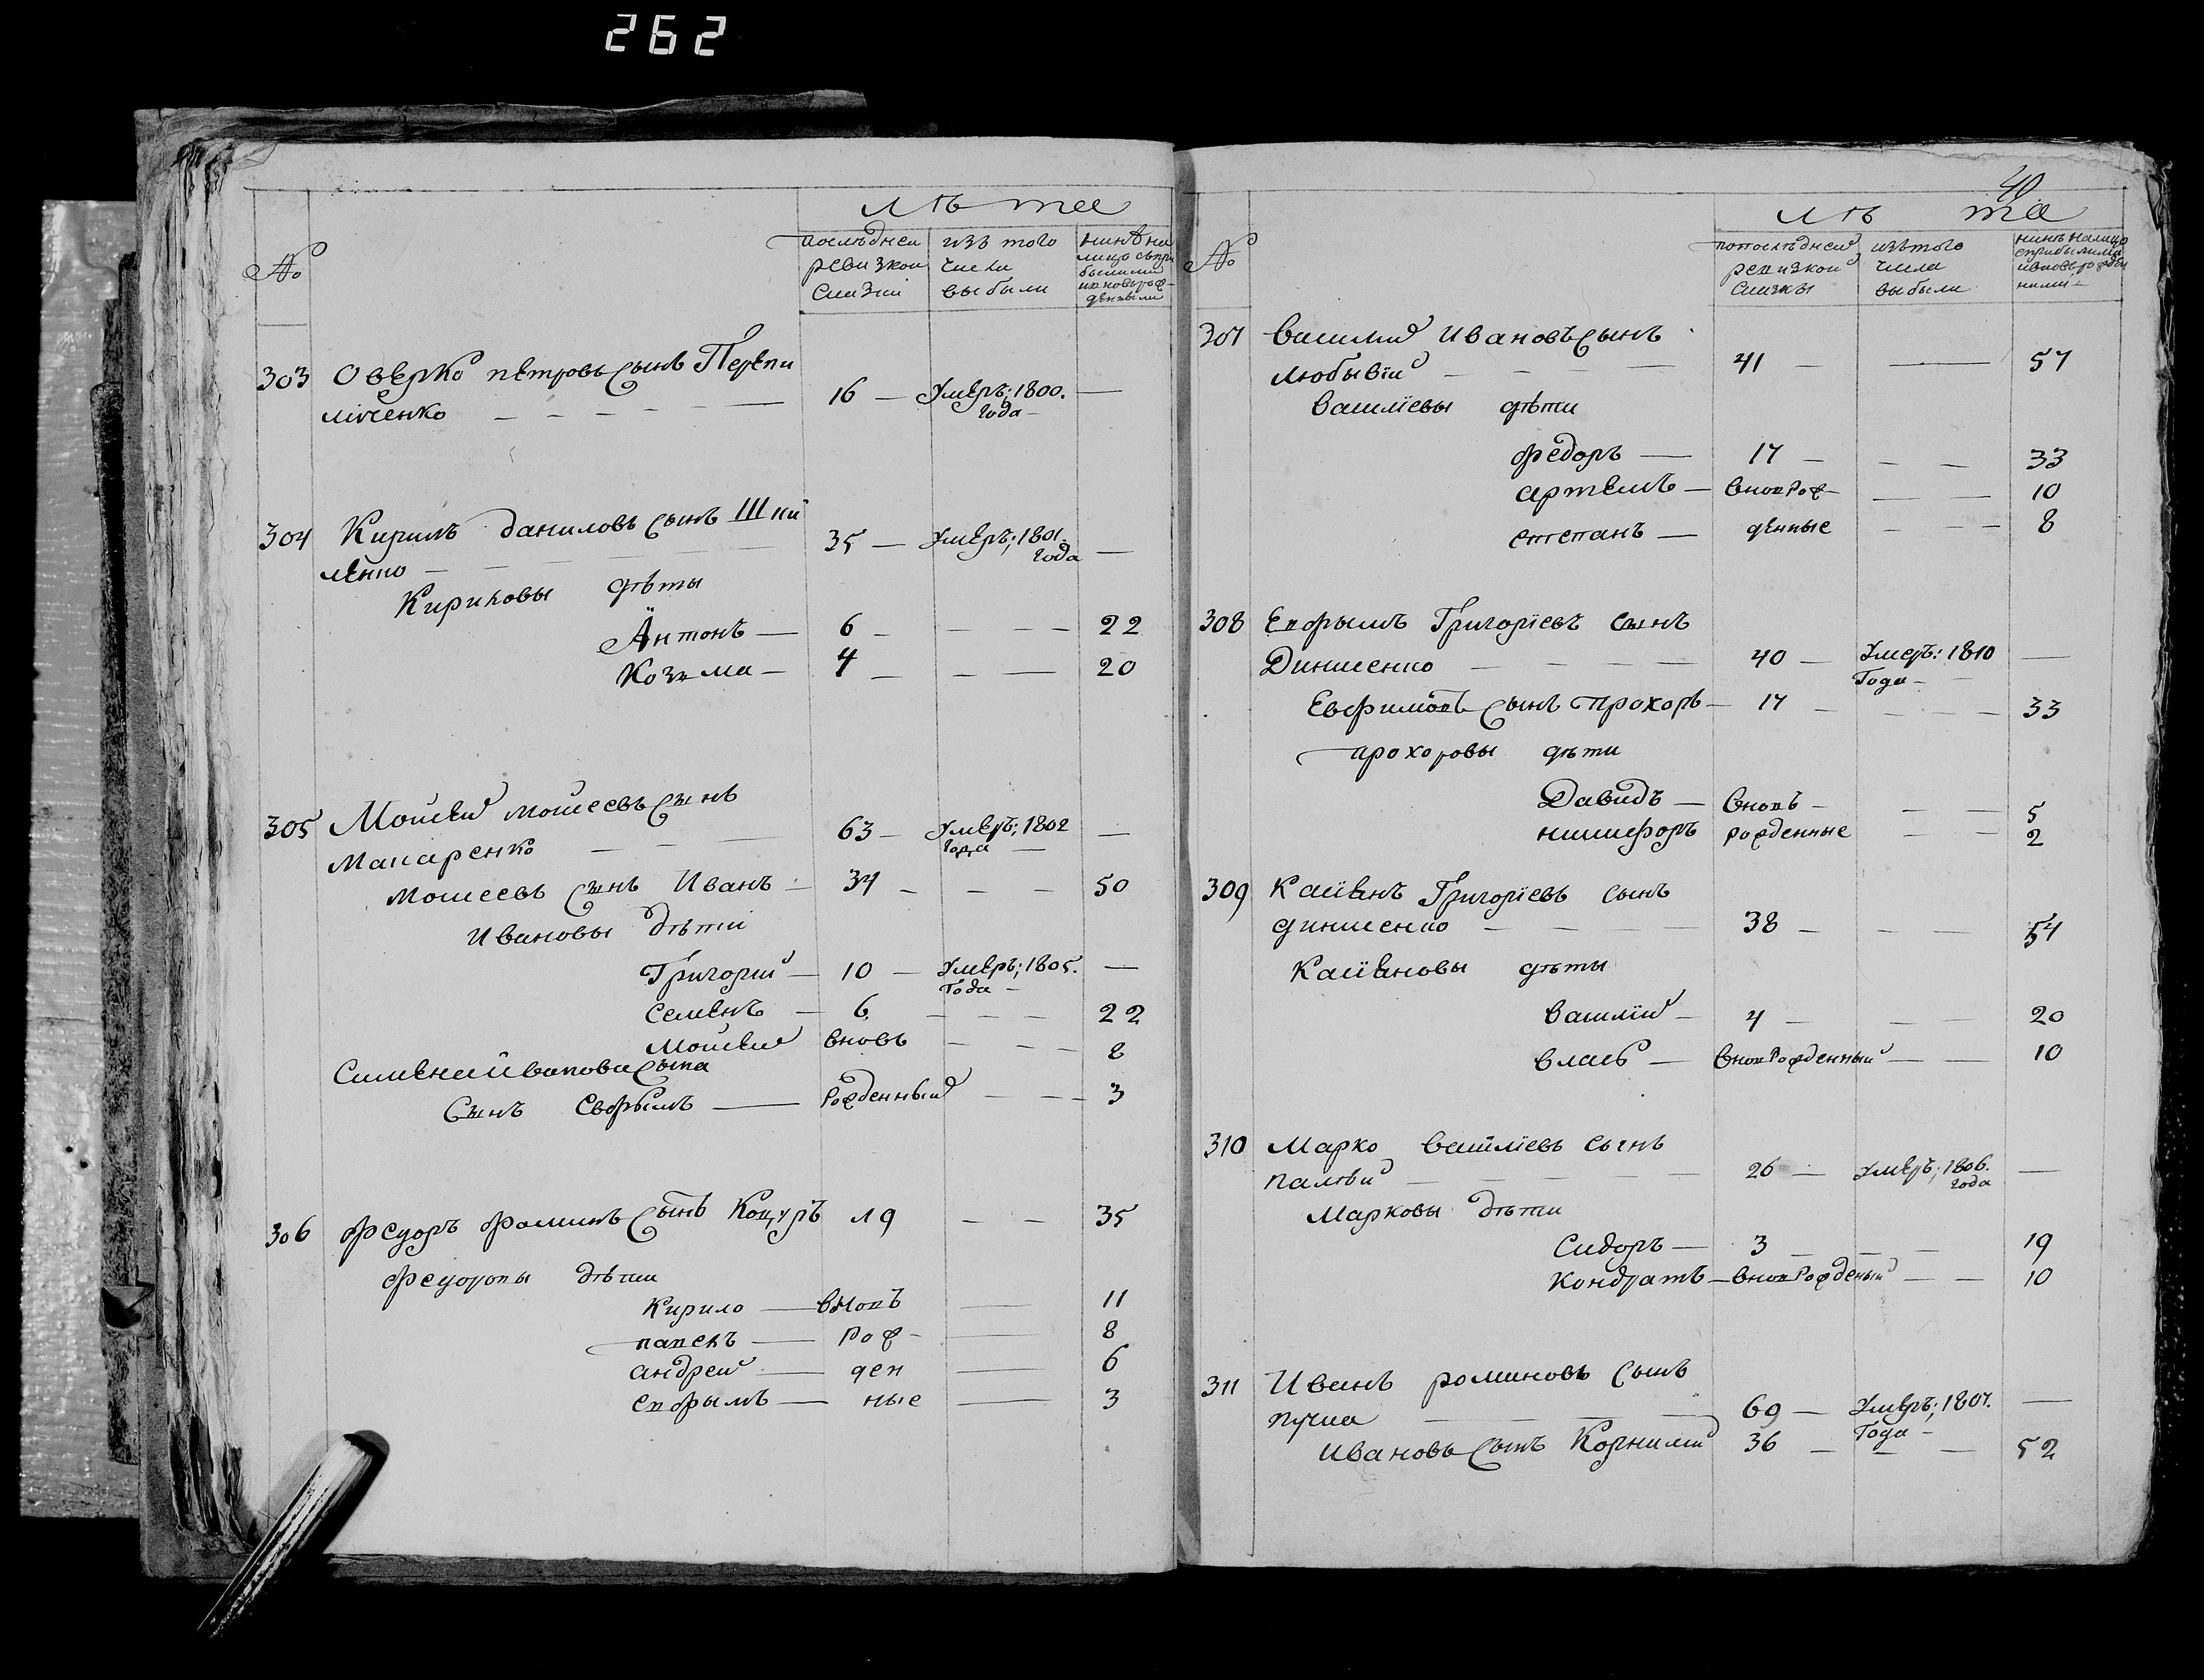 262
лѣта
№
последнеи ревизкои сказки
изъ того числа выбыли
нинѣ на лицо съ прибылими и новорожденными
303 Оверко петровъ сынъ Перепи
личенко — 16 — Умеръ; 1800. года — —
304 Кирилъ даниловъ сынъ Шпи
ленко — 35 — Умеръ; 1801. года —
Кириловы дѣты
Антонъ — 6 — — — 22
Козма — 4 — — — 20
305 Моисей моисеевъ сынъ
Макаренко — 63 — Умеръ; 1802 года —
Моисеевъ сынъ Иванъ — 34 — — — 50
Ивановы дѣти
Григорий — 10 — Умеръ; 1805. года — —
Семенъ — 6 — — — 22
Моисей вновь — — — 8
Симена Иванова сына
Сынъ Евфымъ — рожденный — — — 3
306 Федоръ фоминъ сынъ Коцуръ 19 — — 35
Федоровы дѣти
Кирило — вновъ — 11
павелъ — рож — 8
андрей — ден — 6
евфымъ — ные — 3
40
лѣта
№
по последней ревизкой сказки
изъ того числа выбыли
нинѣ на лицо с прибылими и новорожденними
307 Василий Ивановъ сынъ
Любывий — 41 — — 57
Василіевы дѣти
Федоръ — 17 — — — 33
артемъ — вновь рож — — — 10
степанъ — денные — — — 8
308 Евфымъ Григоріевъ сынъ
Динисенко — 40 — Умеръ: 1810 Года — —
Евфимовъ сынъ Прохоръ — 17 — — — 33
прохоровы дѣти
Давидъ — вновъ — — — 5
никифоръ рожденные — — 2
309 Касіянъ Григоріевъ сынъ
динисенко — 38 — — — 54
Касіяновы дѣты
Василій — 4 — — — 20
власъ — вновь рожденный — — 10
310 Марко Василіевъ сынъ
Палѣй — 26 — Умеръ; 1806. года —
Марковы дѣти
Сидоръ — 3 — — — 19
Кондратъ — вновь рожденый — — 10
311 Иванъ романовъ сынъ
пучка — 69 — Умеръ; 1807. Года — —
Ивановъ сынъ Корнилий 36 — — — 52